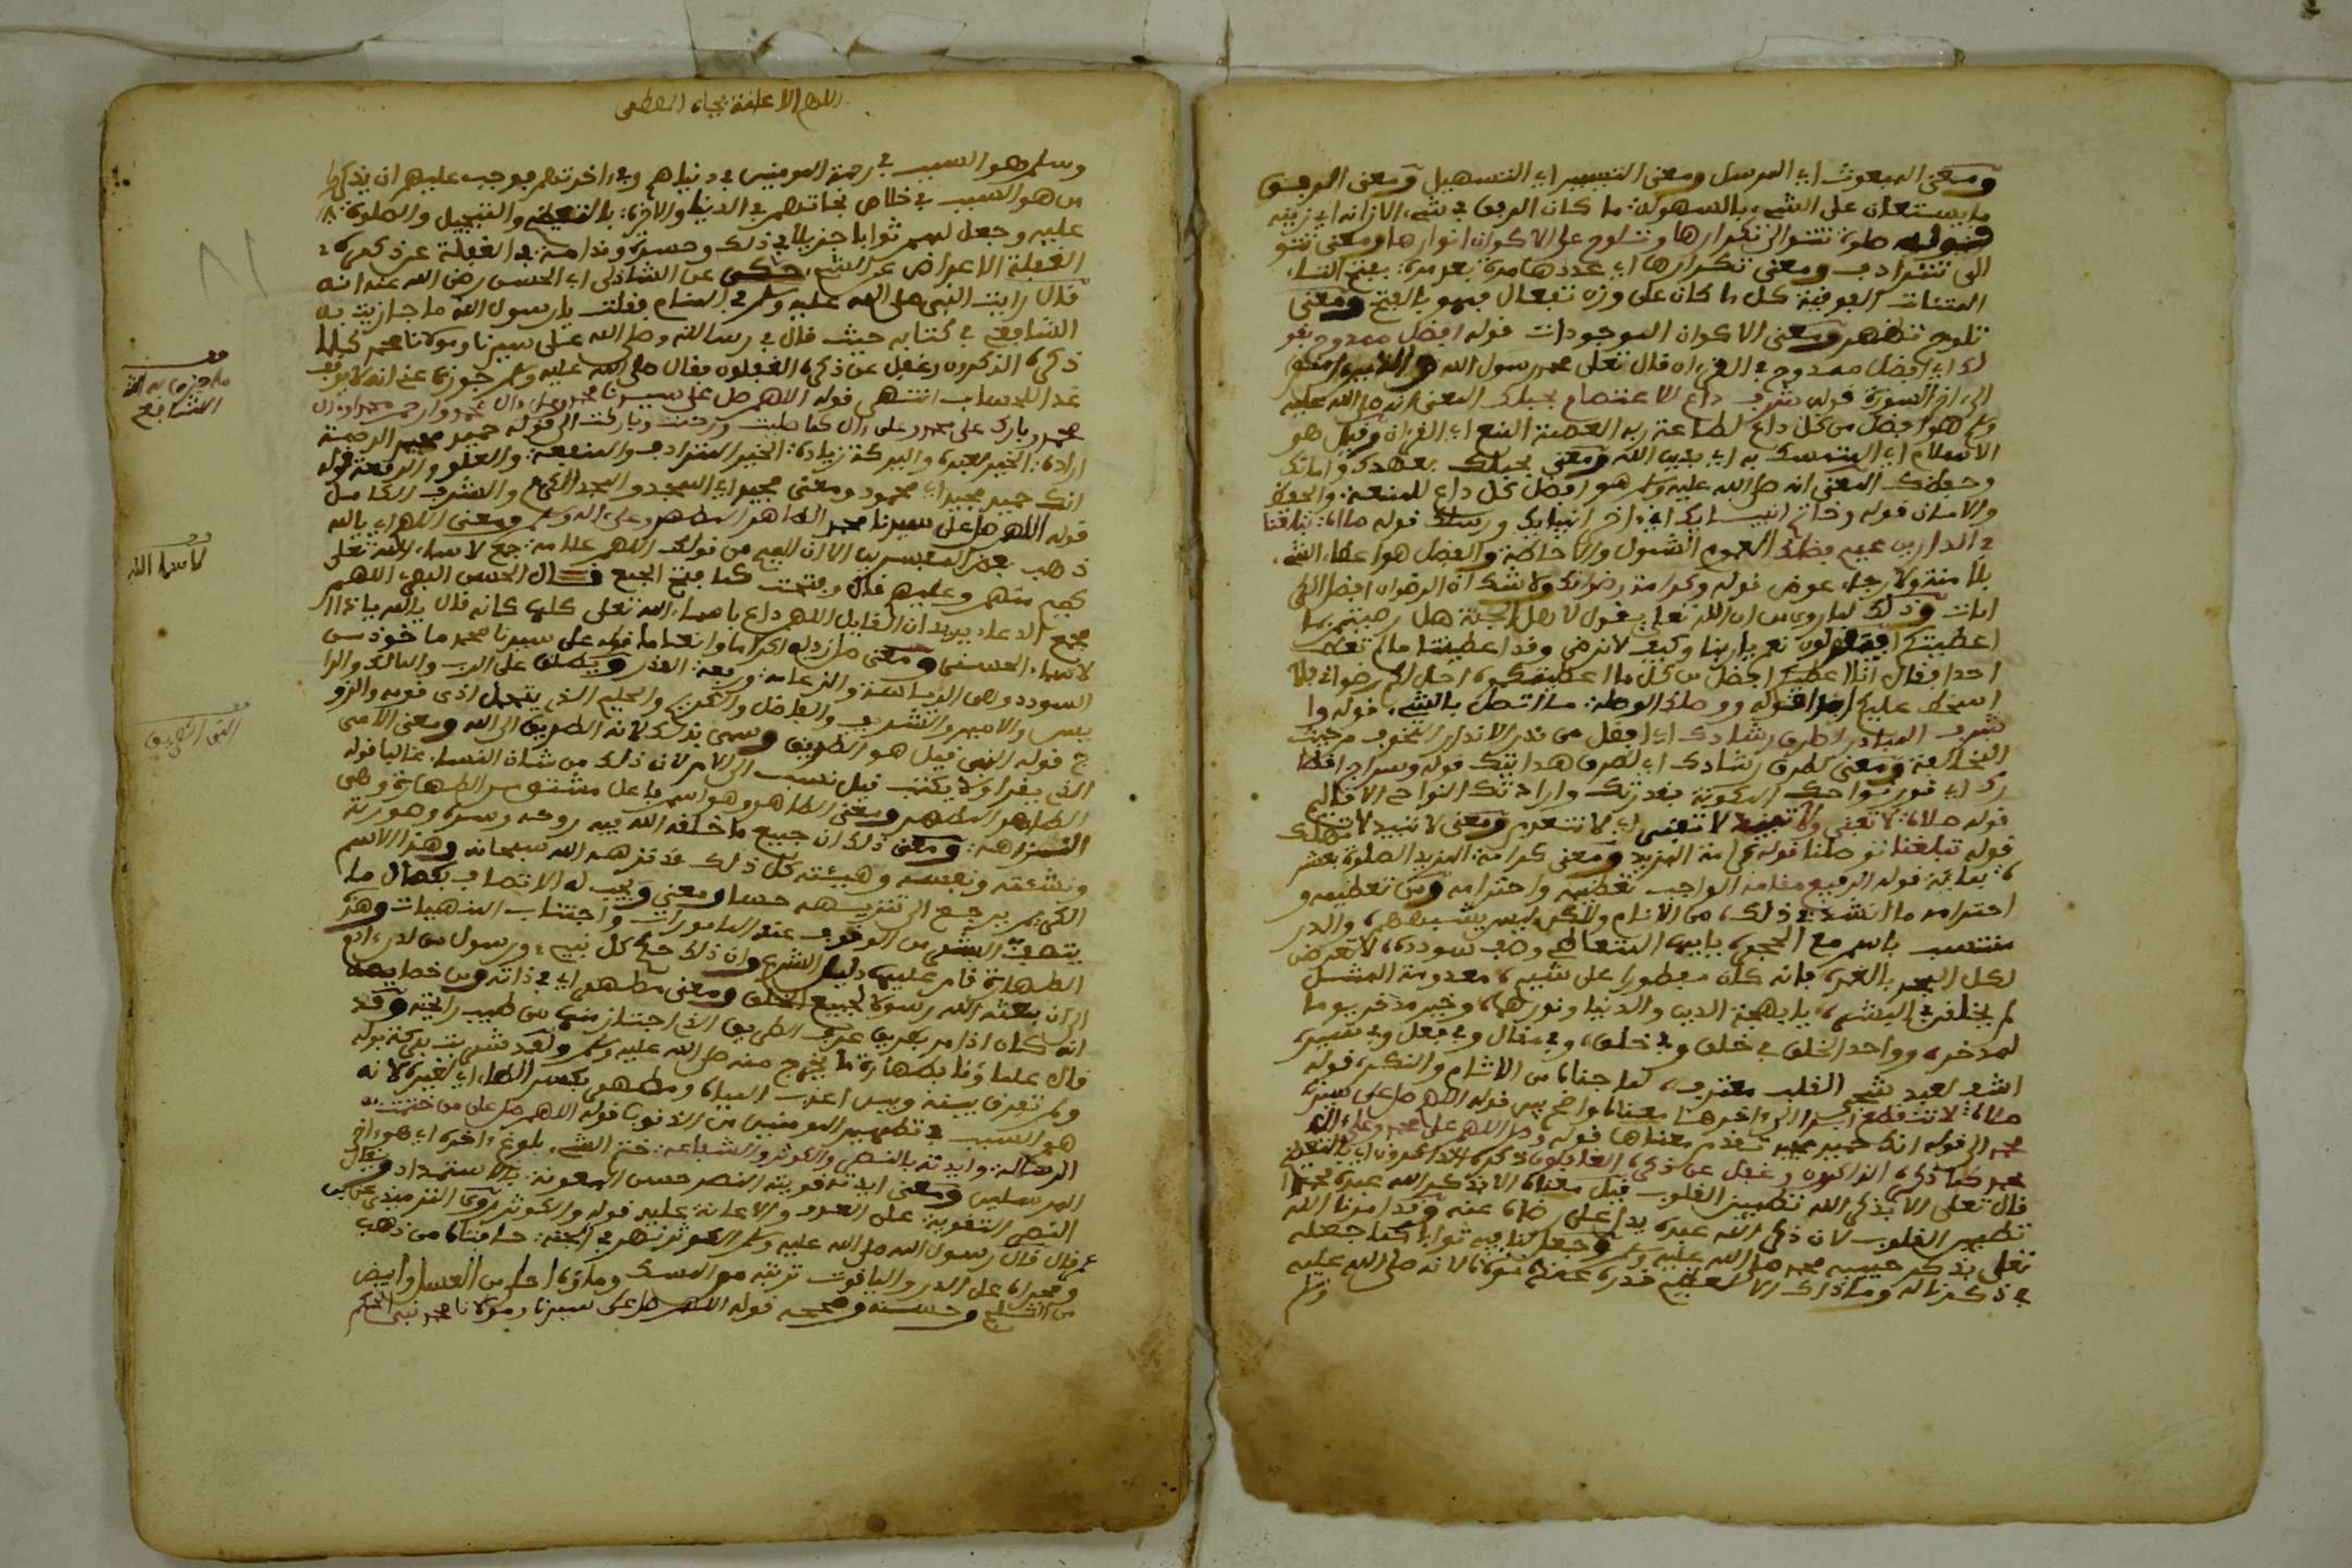 ومعنى المبعوث اي المرسل ومعنى التيسير اي التسهيل ومعنى الرفق
ما يستعان على الشيء بالسهولة ما كان الرفق في شيء الا زانه اي زينه
صلوة تتوالى تكرارها وتلوح على الاكوان انوارها ومعنى تتو
الى تترادف ومعنى تكرارها اي عددها مرة بعد مرة بفتح التاء
المثنات الفوقية كل ما كان على وزن تفعال فهو بالفتح ومعنى
تلوح تظهر ومعنى الاكوان الموجودات قوله افضل ممدوح بقو
لك اي افضل ممدوح في القرءان قال تعلى محمد رسول الله والذين امنوا
الى اخر السورة قوله شرف داع للاعتصام بحبلك المعنى انه صلى الله عليه
وسلم هو افضل من كل داع لطاعة ربه العصمة المنع اي القرءان وقيل هو
الاسلام اي التمسك به اي بدين الله ومعنى بحبلك بعهدك وامانك
وحفظك المعنى انه صلى الله عليه وسلم هو افضل كل داع للمنعة والحفظ
والامان قوله وخاتم انبيايك اي ءاخر انبيايك ورسلك قوله صلاة تبلغنا
في الدارين عميم فضلك العموم الشمول والاحاطة والفضل هو اعطاء الشيء
بلا منة ولا رجاء عوض قوله وكرامة رضوانك ولا شك ان الرضوان افضل الكر
امات وذلك لما روي من ان الله تعلى يقول لاهل الجنة هل رضيتم بما
اعطيتكم فيقولون نعم يا ربنا وكيف لا نرضى وقد اعطيتنا ما لم تعط
احدا فيقال انا اعطيكم افضل من كل ما اعطيتكموه احل لكم رضواني فلا
اسخط عليكم ابدا قوله ووصلك الوصلة ما اتصل بالشيء قوله وا
شرف المنادين لطرق رشادك اي افضل من نذر الانذار التخوف من حيث
المخالفة ومعنى لطرق رشادك اي لطرق هدايتك قوله وسراج اقطا
رك اي نور نواحك المكونة بقدرتك وارادتك النواحي الاقاليم
قوله صلاة لا تفنى ولا تبيد لا تفنى اي لا تنعدم ومعنى لا تبيد لا تهلك
قوله تبلغنا توصلنا قوله كرامة المزيد ومعنى كرامة المزيد الصلوة بعشر
قوله الرفيع مقامه الواجب تعظيمه واحترامه ومن تعظيمه و
احترامه ما انشد في ذلك من الانام ولاكن ليس يشبههم والدر
منتسب باسم مع الحجر يابيها المتعالي وصف سودده لا تعرض
لكل البحر بالغمر بانه كان مفطورا على شيم معدومة المثل
لم يخلق في البشر يا بهجة الدين والدنيا ونورهما وخير مدخر يوما
لمدخر وواحد الخلق في خلق وفي خلق وفي مقال وفي فعل وفي سير
اشفع لعبد شجي القلب معترف كما جناه من الاثام والنكر قوله
صلاة لا تنقطع ابدا الى ءاخرها معناه واضح بين قوله اللهم صل على سيدنا
محمد الى قوله انك حميد مجيد تقدم معناها قوله وصل اللهم على محمد وعلى اله
محمد كما ذكره الذاكرون وغفل عن ذكره الغافلون ذكره الذاكرون اي بالتعظيم
قال تعلى الا بذكر الله تطمين القلوب قيل معناه الا بذكر الله عبده محمدا
تطمين القلوب لان ذكر الله عبده يدل على رضاه عنه وقد امرنا الله
تعلى بذكر حبيبه محمد صلى الله عليه وسلم وجعل لنا فيه ثوابا كما جعله
في ذكرنا له وما ذاك الا لعظيم قدره عند مولانا لانه صلى الله عليه
وسلم
اللهم الاعانة بجاه المصطفى
وسلم هو السبب في رحمة المومنين في دنياهم وفي ءاخرتهم فوجب عليهم ان يذكروا
من هو السبب في خلاص نجاتهم في الدنيا والاخرة بالتعظيم والتبجيل والصلوة
عليه وجعل لهم ثوابا جزيلا في ذلك وحسرة وندامة في الغفلة عن ذكره
الغفلة الاعراض عن الشيء حكى عن الشاذلي ابي الحسن رضي الله عنه انه
قال رايت النبي صلى الله عليه وسلم في المنام فقلت يا رسول الله ما جازيت به
الشافعي في كتابه حيث قال في رسالته وصل الله على سيدنا ومولانا محمد كلما
ذكره الذكرون وغفل عن ذكره الغفلون فقال صلى الله عليه وسلم جوزي عني انه لا يوقف
غدا للحساب انتهى قوله اللهم صل على سيدنا محمد وعلى ءال محمد وارحم محمدا وءال
محمد وبارك على محمد وعلى ءال كما صليت ورحمت وباركت الى قوله حميد مجيد الرحمة
ارادة الخير لعبده والبركة زيادة الخير المترادف والمنفعة والعلو والرفعة قوله
انك حميد مجيد اي محمود ومعنى مجيد اي الممجد والمجد الكرم والشرف الكامل
قوله اللهم صل على سيدنا محمد الطاهر المطهر وعلى اله وسلم ومعنى اللهم اي يا الله
ذهب بعض المفسرين الا ان الميم من قولك اللهم علامة جمع لاسماء الله تعلى
كميم منهم وعليهم قال وفتحت كما فتح الجمع قال الحسن البصري اللهم
مجمع الدعاء يريد ان القايل اللهم داع باسماء الله تعلى كلها كانه قال يا الله يا ذا
لاسماء الحسنى ومعنى صل زده اكراما وانعاما قوله على سيدنا محمد ماخوذ من
السودد وهي الرياسة والزعامة ورفعة القدر ويطلق على الرب والمالك والرا
يس والامير والشريف والفاضل والكريم والحليم الذي يتحمل اذى قومه والزو
ج قوله النبي قيل هو الطريق وسمي بذلك لانه الطريق الى الله ومعنى الامي
الذي يقرا ولا يكتب قيل نسب الى الام لان ذلك من شان النساء غالبا قوله
الطاهر المطهر ومعنى الطاهر وهو اسم فاعل مشتق من الطهارة وهي
النزاهة ومعنى ذلك ان جميع ما خلقه الله فيه روحه وسره وصورته
ونشئته ونفسه وهيئته كل ذلك قد نزهه الله سبحانه وهذا الاسم
الكريم يرجع الى تنزيهه حسا ومعنى ويجب له الاتصاف بكمال ما
يتصف البشر من الوقوف عند المامورات واجتناب المنهيات وهذه
الطهارة قام عليها دليل الشرع وان ذلك حكم كل نبيء ورسول من لدن ءادم
الى ان بعثه الله رسولا لجميع الخلق ومعنى مطهر اي في ذاته ومن خصايصه
انه كان اذا مر بطريق عرف الطريق الذي اجتاز منها من طيب رايحته وقد
قال علماؤنا بطهارة ما يخرج منه صلى الله عليه وسلم ولقد شربت بركة بوله
ولم تعرف بينه وبين اعذب المياه ومطهر بكسر الهاء اي لغيره لانه
هو السبب في تطهير المومنين من الذنوب قوله اللهم صل على من ختمت به
الرسالة وايدته بالنصر والكوثر والشفاعة ختم الشيء بلوغ ءاخره اي هو ءاخر
المرسلين ومعنى ايدته قويته النصر حسن المعونة بالاستمداد ويقال
النصر التقوية على العدو والاعانة عليه قوله والكوثر روى الترمذي عن ابن
عمر قال قال رسول الله صلى الله عليه وسلم الكوثر نهر في الجنة حافتاه من ذهب
ومجراه على الدر والياقوت تربته من المسك وماؤه احلى من العسل وابيض
من الثلج وحسنه وصححه قوله اللهم صل على سيدنا ومولانا محمد نبي الحكم
قف
ما جزى به الله
الشافعي
قف
لاسماء الله